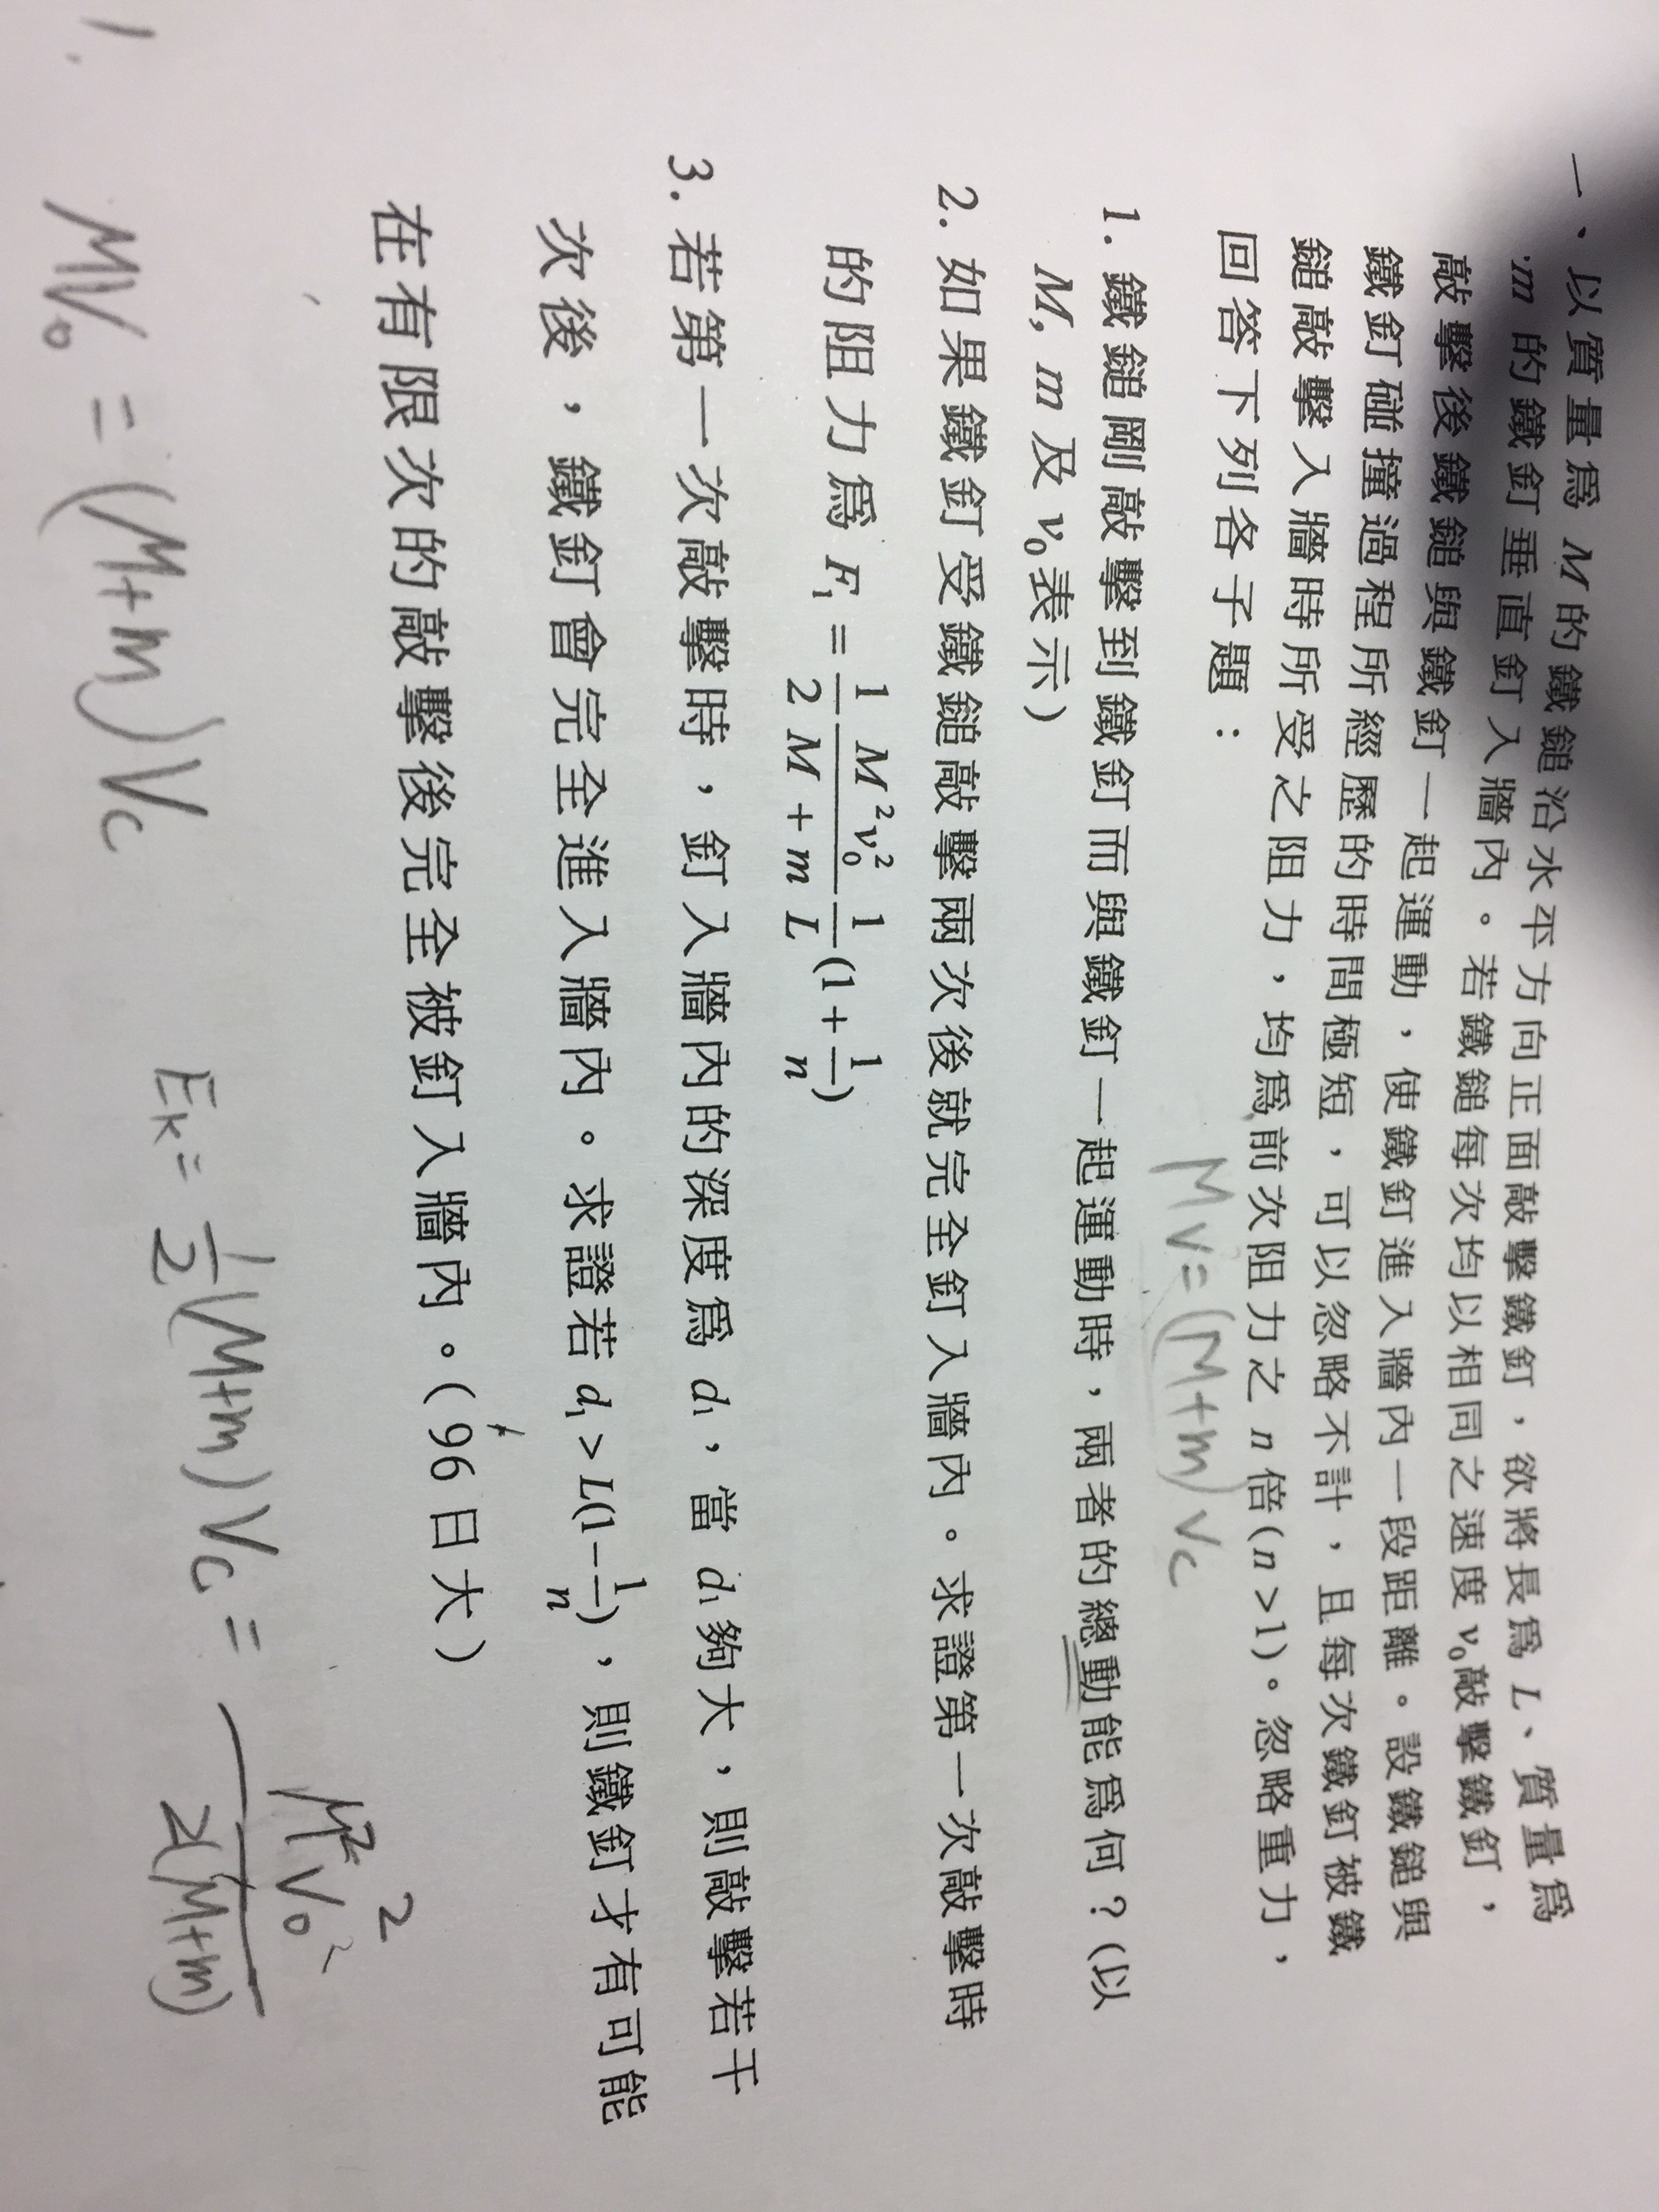 一、以質量爲 M 的鐵鎚沿水平方向正面敲擊鐵釘，欲將長爲 L、質量爲
m 的鐵釘垂直釘入牆內。若鐵鎚每次均以相同之速度 v₀敲擊鐵釘，
敲擊後鐵鎚與鐵釘一起運動，使鐵釘進入牆內一段距離。設鐵鎚與
鐵釘碰撞過程所經歷的時間極短，可以忽略不計，且每次鐵釘被鐵
鎚敲擊入牆時所受之阻力，均爲前次阻力之 n 倍(n >1)。忽略重力，
回答下列各子題：
Mv=(M+m)Vc
1. 鐵鎚剛敲擊到鐵釘而與鐵釘一起運動時，兩者的總動能爲何？(以
M, m 及 v₀表示)
2. 如果鐵釘受鐵鎚敲擊兩次後就完全釘入牆內。求證第一次敲擊時
的阻力爲 F₁ = 1/2 M²v₀²/(M + m) 1/L (1 + 1/n)
3. 若第一次敲擊時，釘入牆內的深度爲 d₁，當 d₁夠大，則敲擊若干
次後，鐵釘會完全進入牆內。求證若 d₁ > L(1 − 1/n)，則鐵釘才有可能
在有限次的敲擊後完全被釘入牆內。(96日大)
1.
MV₀ = (M+m)Vc
Ek = 1/2(M+m)Vc² = M²V₀²/2(M+m)